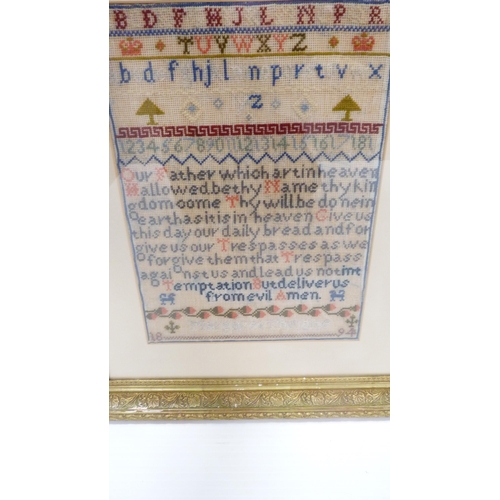 B D F H J L N P R
T U V W X Y Z
b d f h j l n p r t v x
z
Our Father which art in heaven
Hallowed be thy Name thy kin
gdom come Thy will be done in
earth as it is in heaven Give us
this day our daily bread and for
give us our Trespasses as we
forgive them that Trespass
against us and lead us not int
o Temptation But deliver us
from evil Amen.